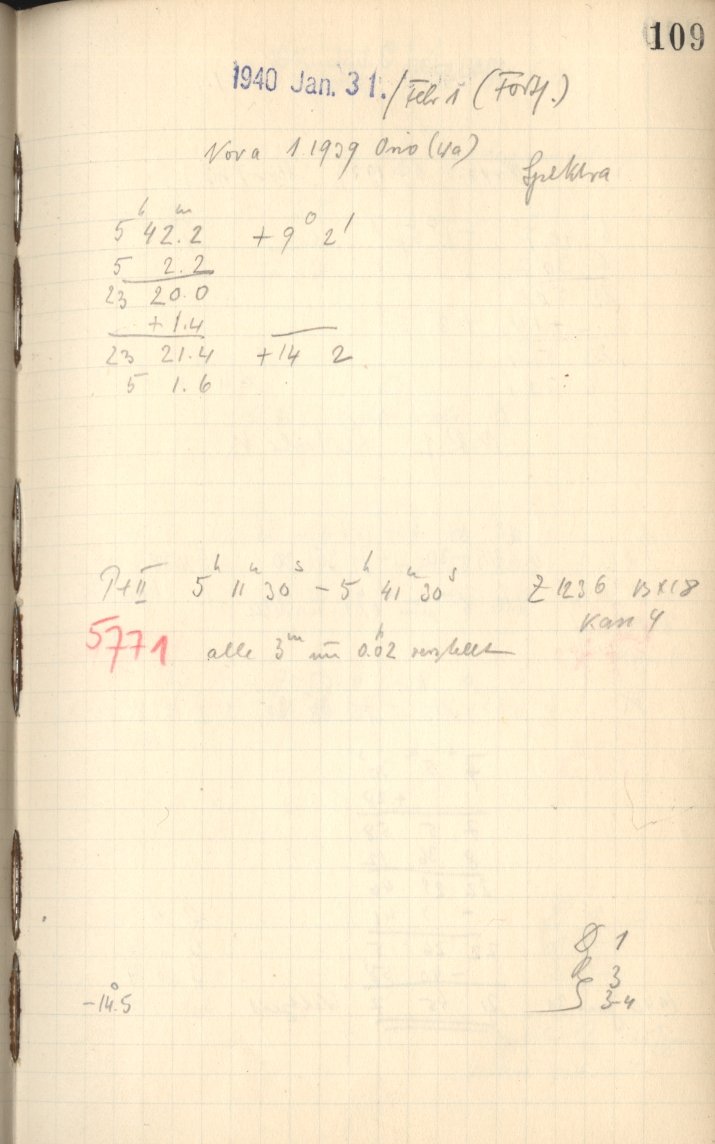 109
1940 Jan. 31./Febr 1 (Forts.)
Nova 1.1939 (Wa)
Spektra
5h 42m.2 +9° 2'
5 2.2
23 20.0
+1.4
23 21.4 +14 2
5 1.6
5h 11m 30s – 5h 41m 30s Z 1236
Kass 4
5771 alle 3m um 0.02 verstellt
1
3
-14°.5 S 3-4